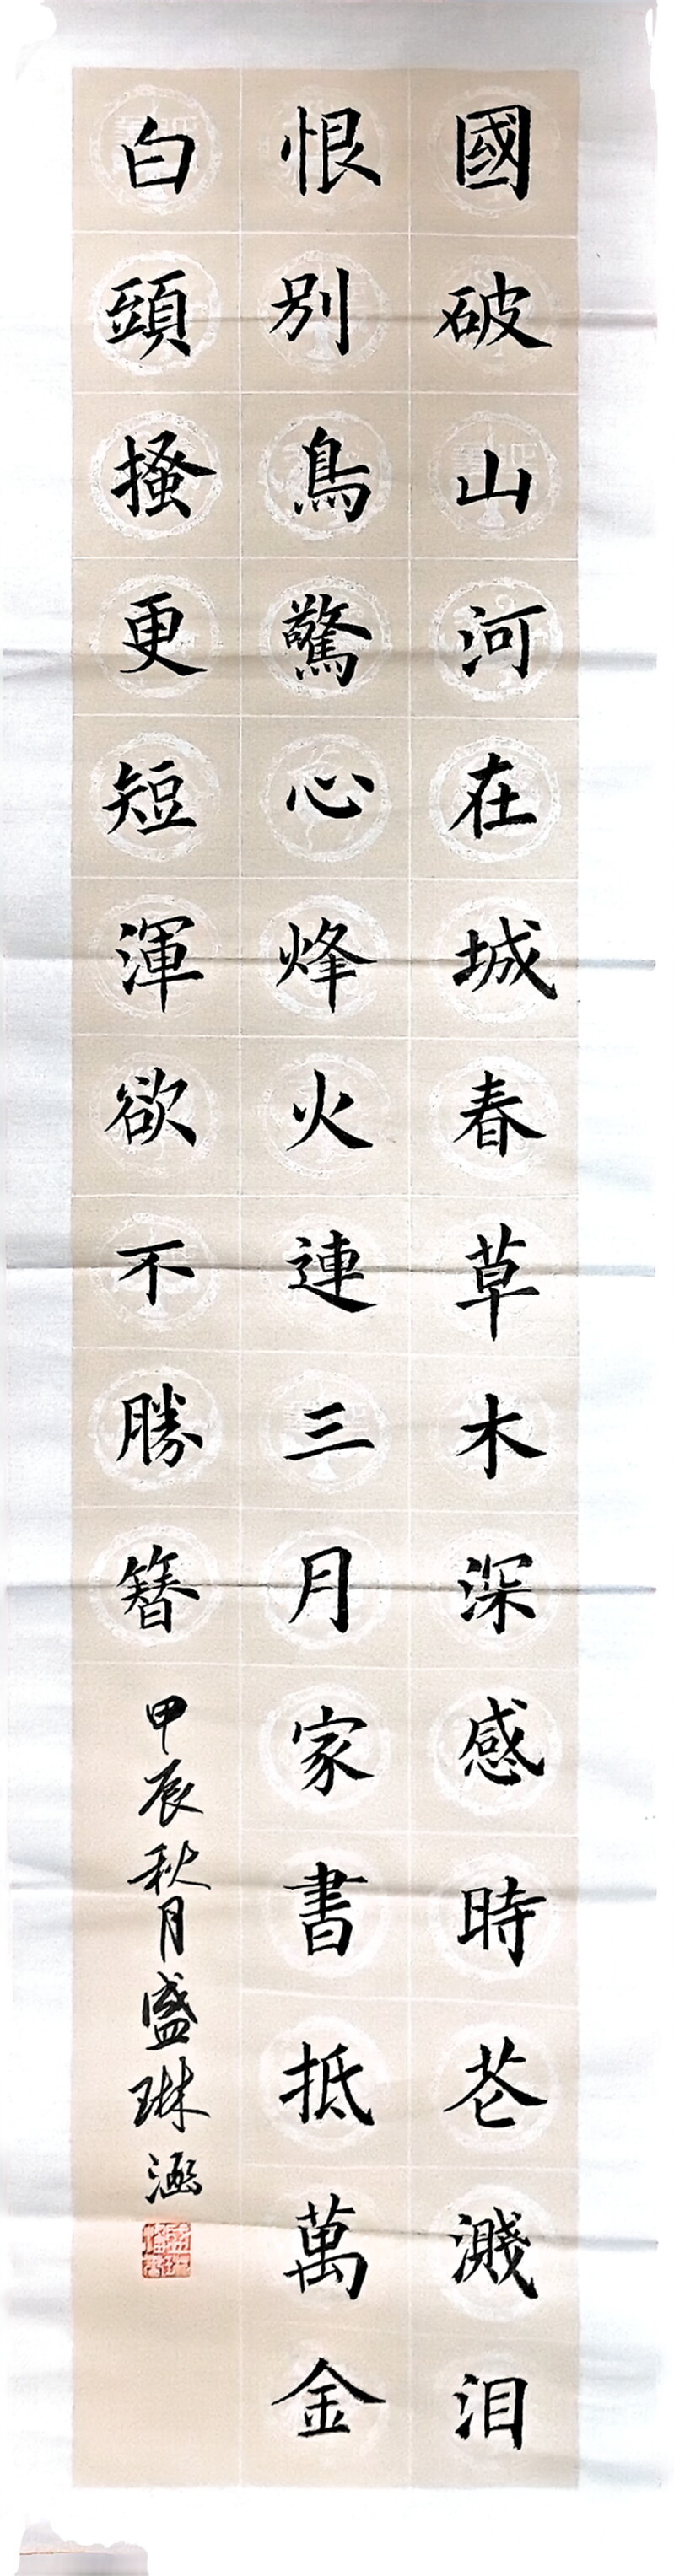 國破山河在城春草木深感時花濺泪
恨別鳥驚心烽火連三月家書抵萬金
白頭搔更短渾欲不勝簪
甲辰秋月盛琳涵